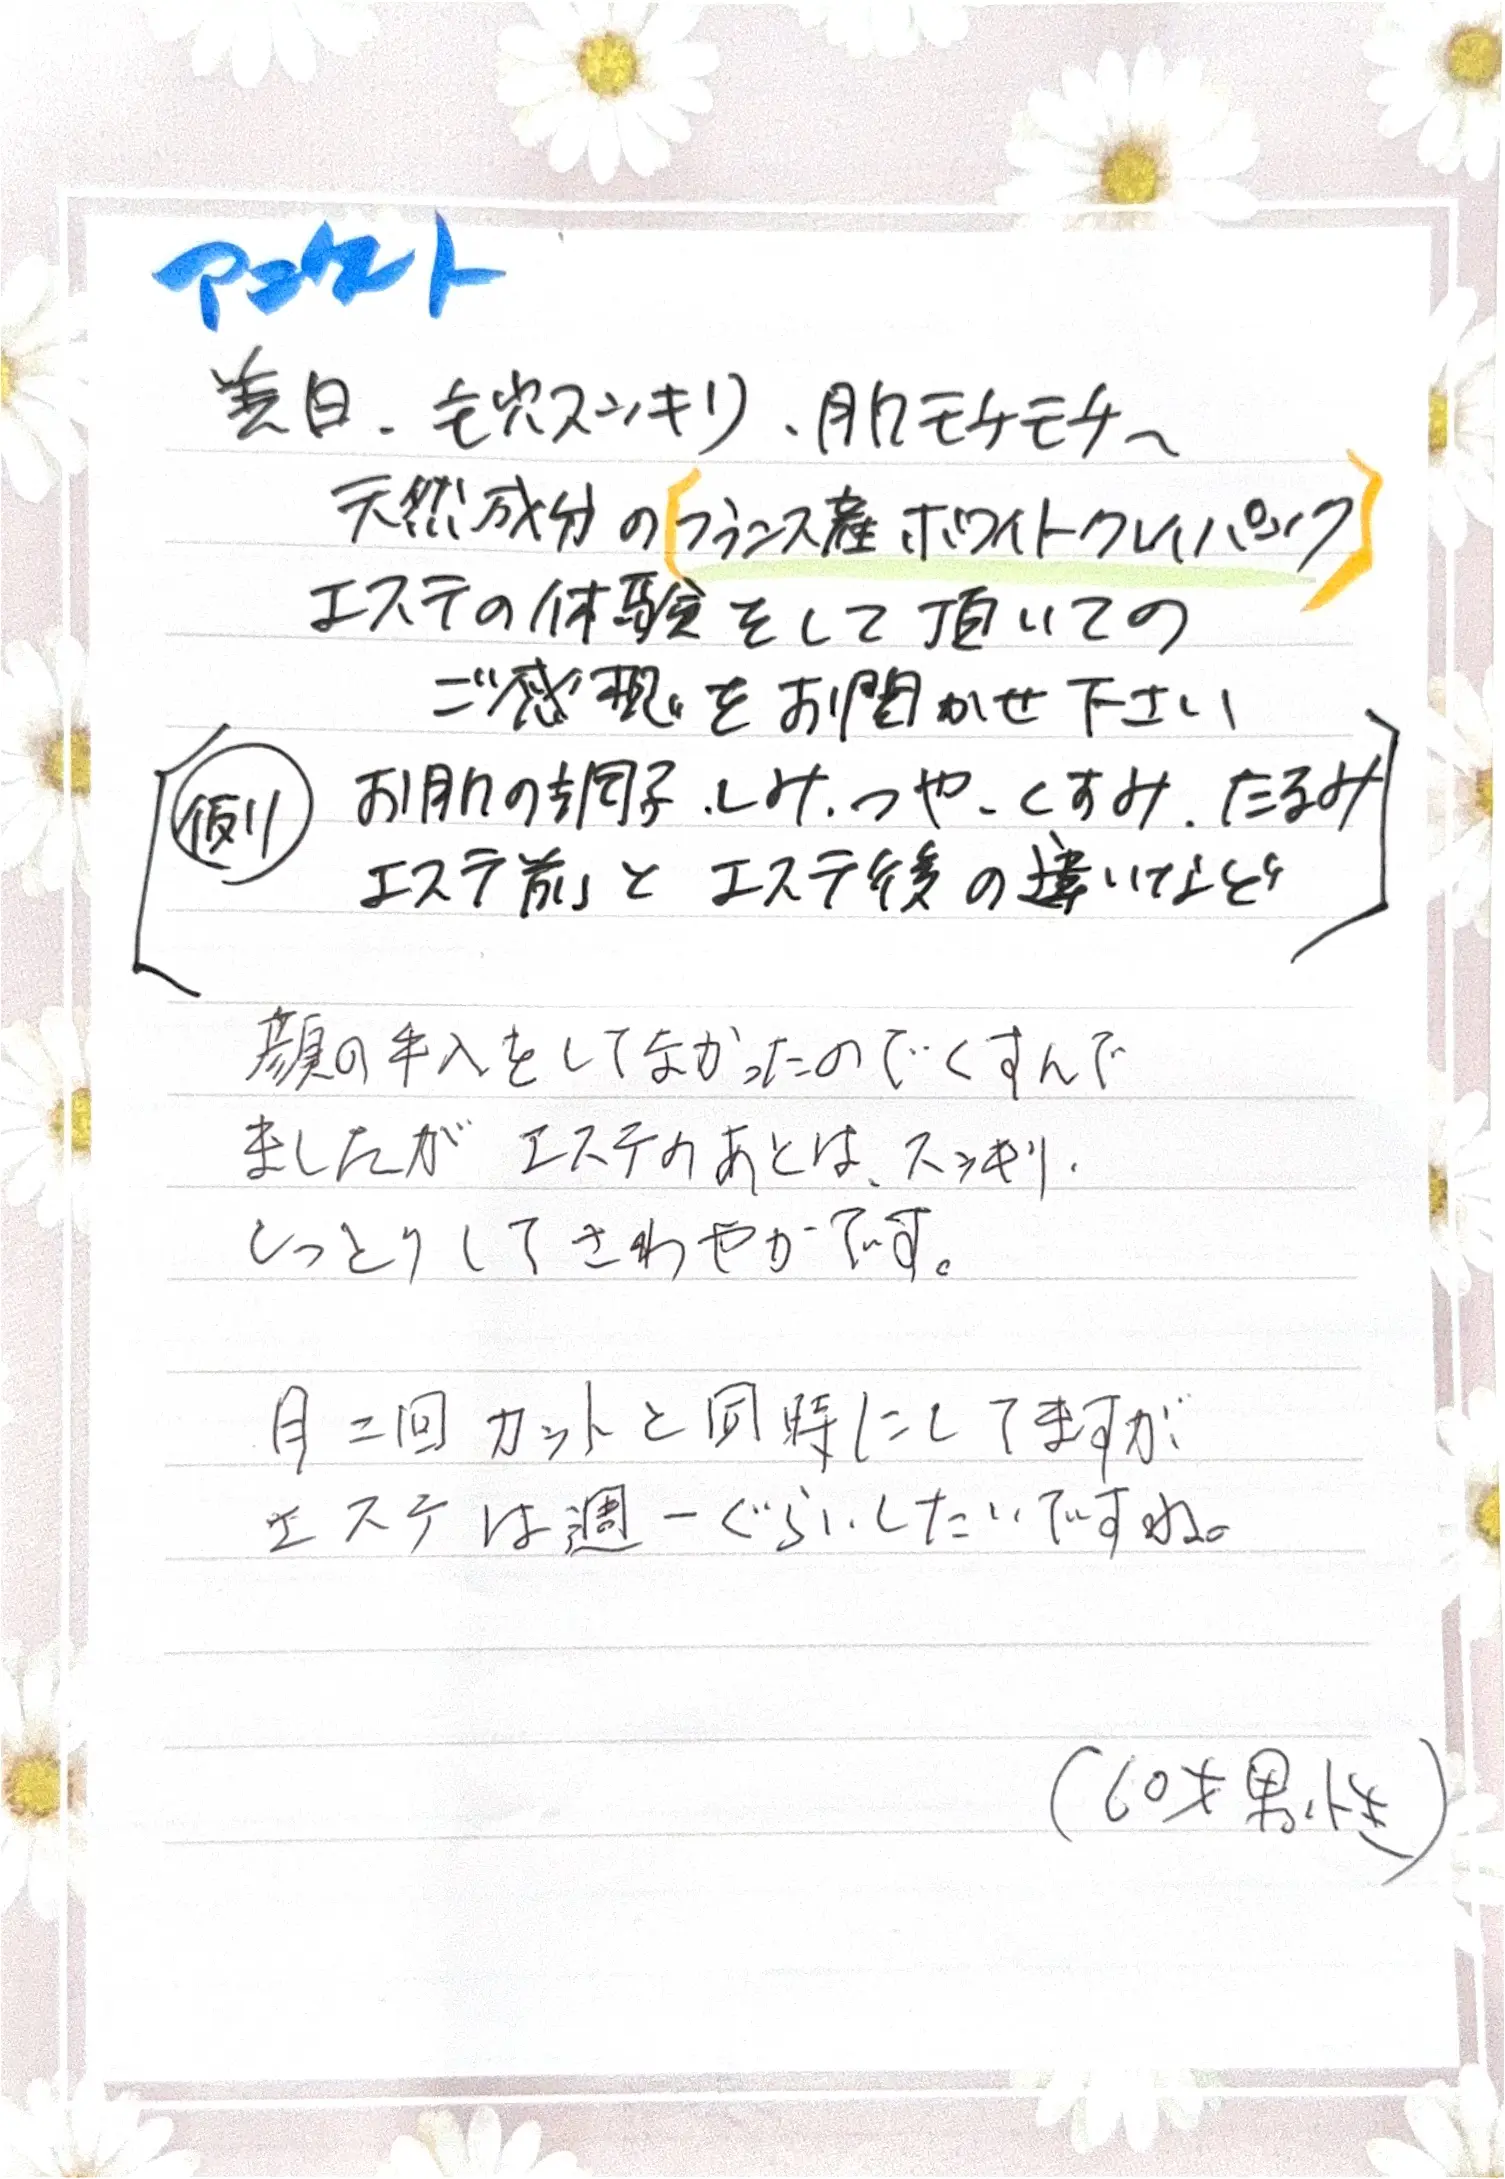 アンケート
美白、毛穴スッキリ、肌モチモチへ
天然成分の[フランス産ホワイトクレイパック]
エステの体験をして頂いての
ご感想をお聞かせ下さい
例 お肌の調子、しみ、つや、くすみ、たるみ
エステ前とエステ後の違いなど
顔の手入をしてなかったのでくすんで
ましたが エステのあとは、スッキリ、
しっとりしてさわやかです。
月二回カットと同時にしてますが
エステは週一ぐらいしたいですね。
(60才男性)